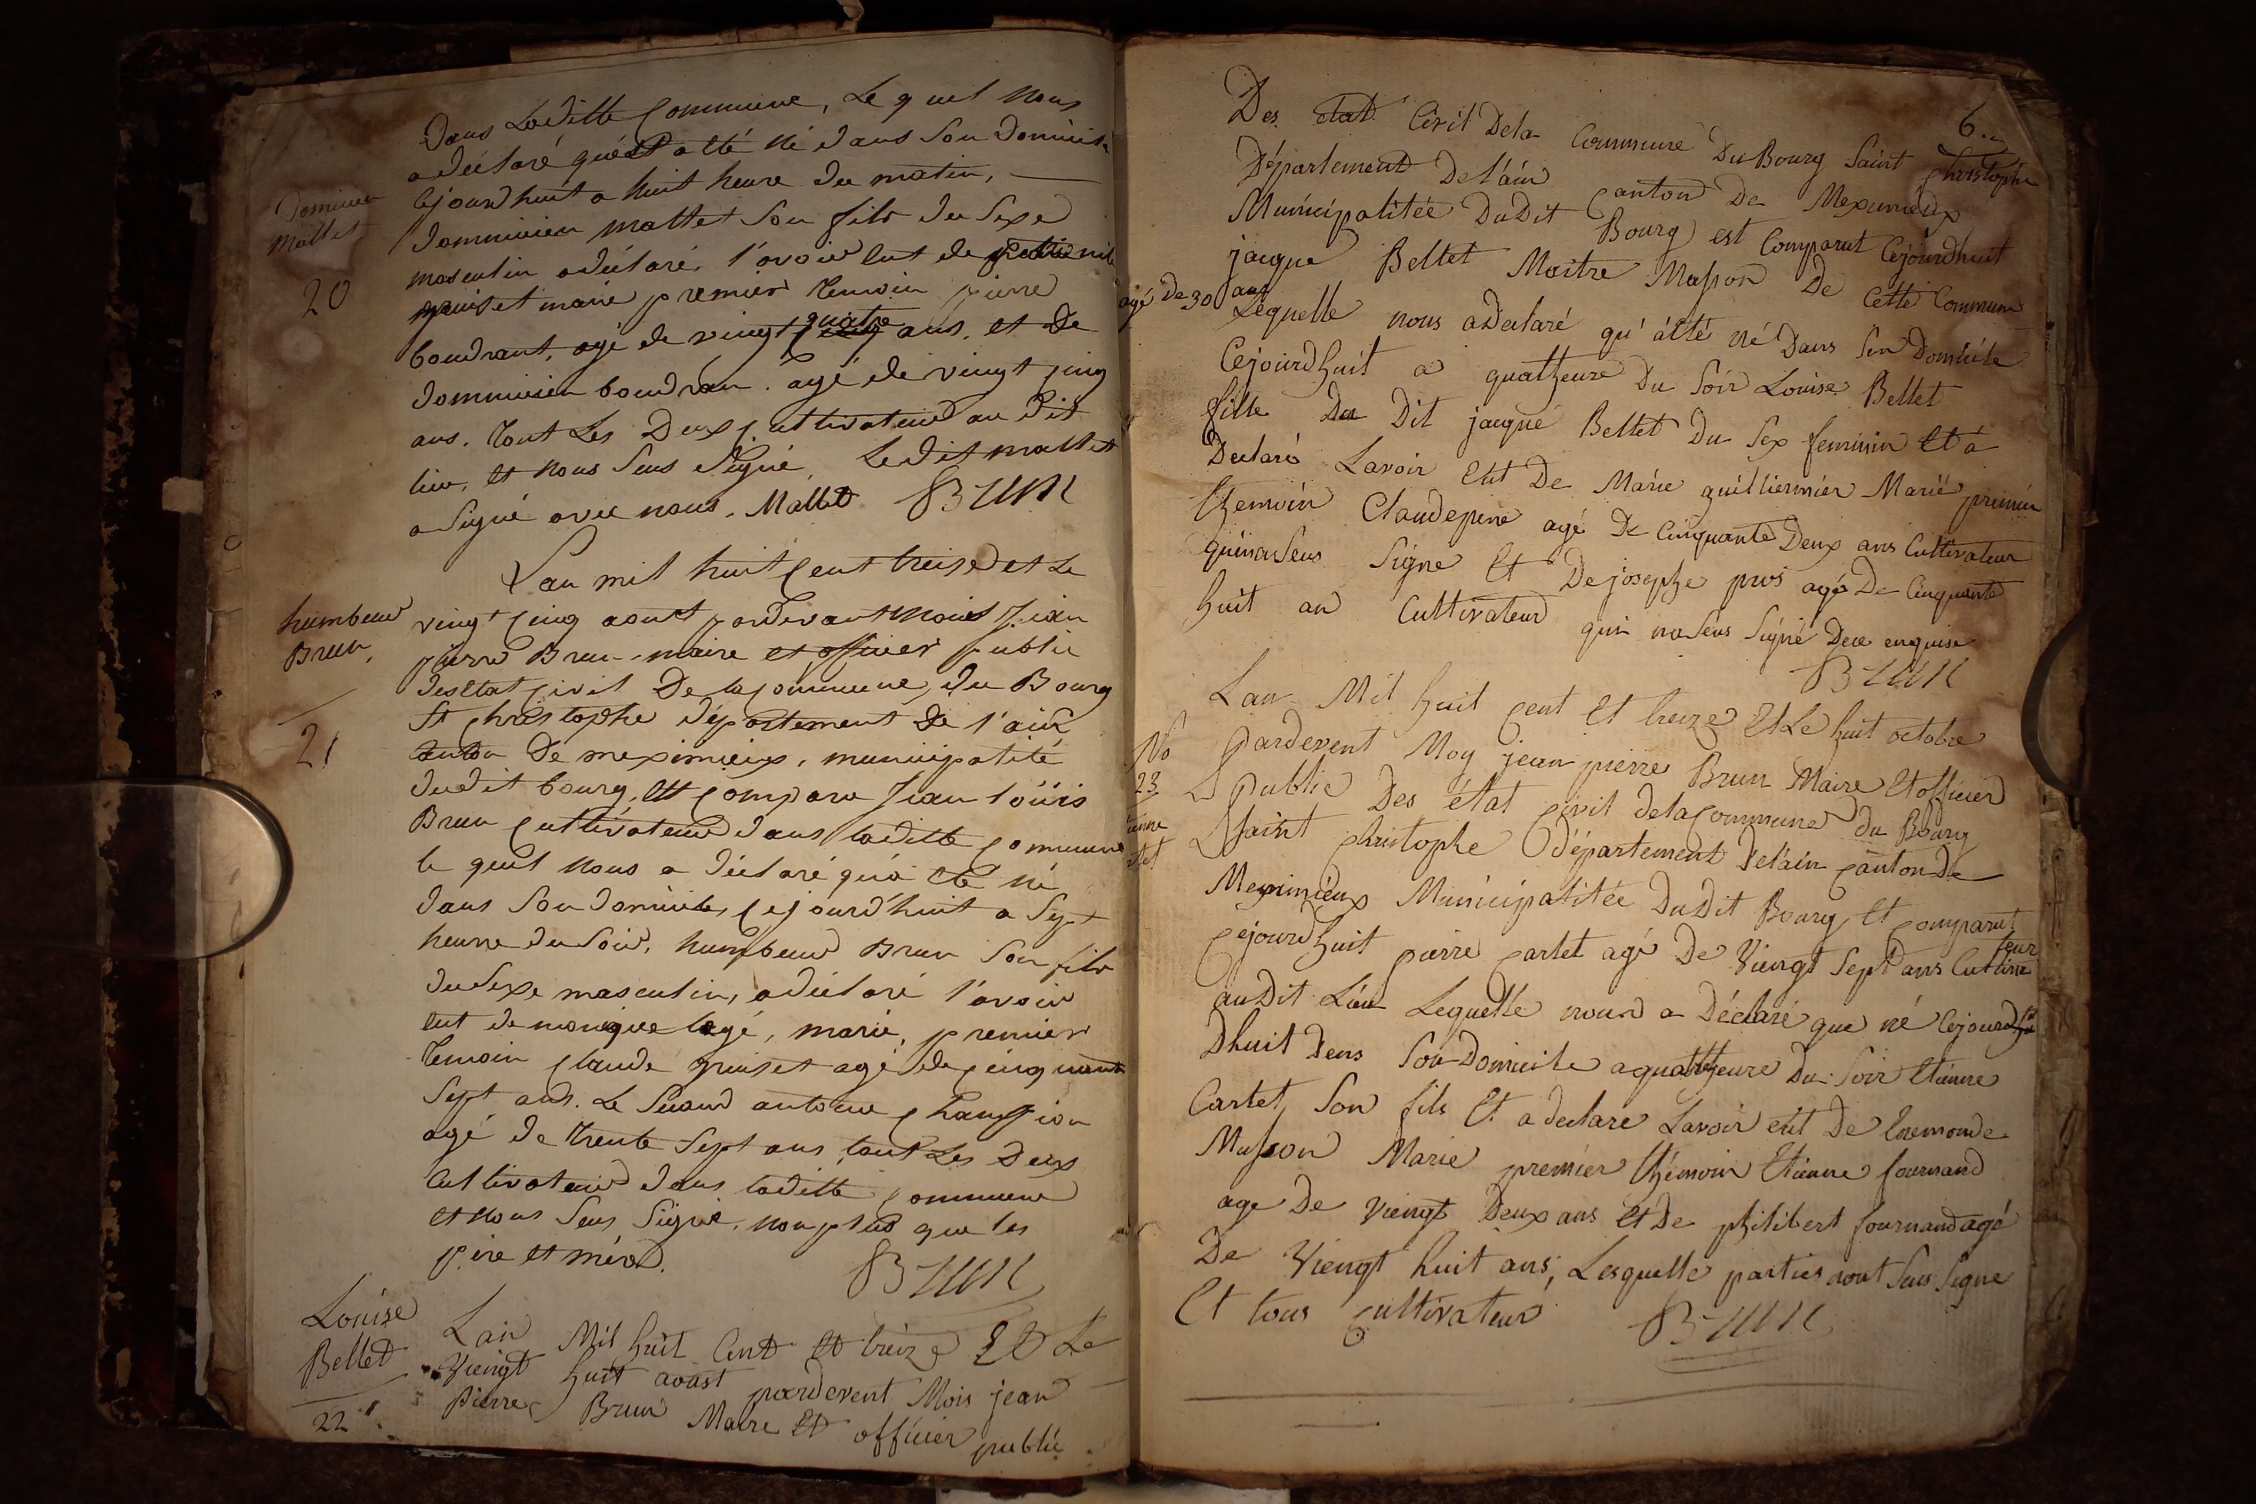 Dans Laditte Commune, Le quel nous
a déclaré qué a été né dans son domicile
Cejourdhuit a huit heure du matin,
Domminien
Mallet
20
dominicien mallet son fils du Sexe
masculin a déclaré, l'avoir eut de
guiset marie premier temoin pierre
boudrant, agé de vingt quatre ans, et de
dominicien boudran. agé de vingt cinq
ans. tout Les Deux cultivateur au dit
lieu, et nous seus Signé, Ledit mallet
a Signé avec nous. Mallet Brun
Lan mil huit cent treise et Le
humbeur
Brun,
21
vingt cinq aoust pardevant nous Jean
pierre Brun, maire et officier public
desetat civil De la commune, du Bourg
St christophe département de l'ain
canton De meximieux, municipalité
dudit bourg, Est compara Jean loüis
Brun cultivateur dans laditte commune
le quel nous a déclaré qu'a eté né
dans son domicile, cejourd'huit a Sept
heurre du Soir, humbeur Brun Son fils
du Sexe masculin, a déclaré l'avoir
eut de monique logé, marie, premier
temoin claude guiset agé de cinquante
Sept ans. Le Second antoine champion
agé de trente Sept ans, tout Les Deux
Cultivateur dans laditte commune
et nous Seus Signé, non plus que les
pere et mère.
Brun
Louise
Bellet
22
Lan Mil huit Cent Et treize Et Le
Viengt huit aoust pardevent Mois jean
Pierre Brun Maire Et officier public
6.
Des état Civil Dela Commune Du Bourg Saint Christophe
Département De l'áin Canton De Meximieux
Municipalitée DuDit Bourg est Comparut Cejourdhuit
jacque Bellet Maitre Masson De Cette Commune
agé De 30 ans
Lequelle nous a Declaré qu' áété né Dans Son Domicile
Cejourdhuit a quatheure Du Soir Louise Bellet
fille Du Dit jacque Bellet Du Sex feminin Et á
Declaré Lavoir Eut De Marie guilliermier Marié premier
themoin Claudepine agé De Cinquante Deux ans Cultivateur
quinaseus Signe Et De josephe pros agé De Cinquante
huit an Cultivateur qui naseus Signé Dece enquise
Brun
Lan Mil huit cent Et treize Et Le huit octobre
No
23
pardevent Moy jean pierre Brun Maire Et officier
public Des état civil dela commune du Bourg
Saint christophe Département Delain canton De
Meximieux Municipalitée DuDit Bourg Et comparut
cejourdhuit pierre cartet agé De Viengt Sept ans Cultivateur
auDit Lieu Lequelle nous a Déclaré que né Cejourdhu
Dhuit Dens Son Domicile a quattheure Du Soir Etienne
Cartet, Son fils Et a declare Lavoir eut De Enemonde
Masson Marie premier themoin Etienne fournand
age De Viengt Deux ans Et De philibert fournand agé
De Viengt huit ans; Lesquelle parties nont Seus Signe
Et tous cultivateur
Brun